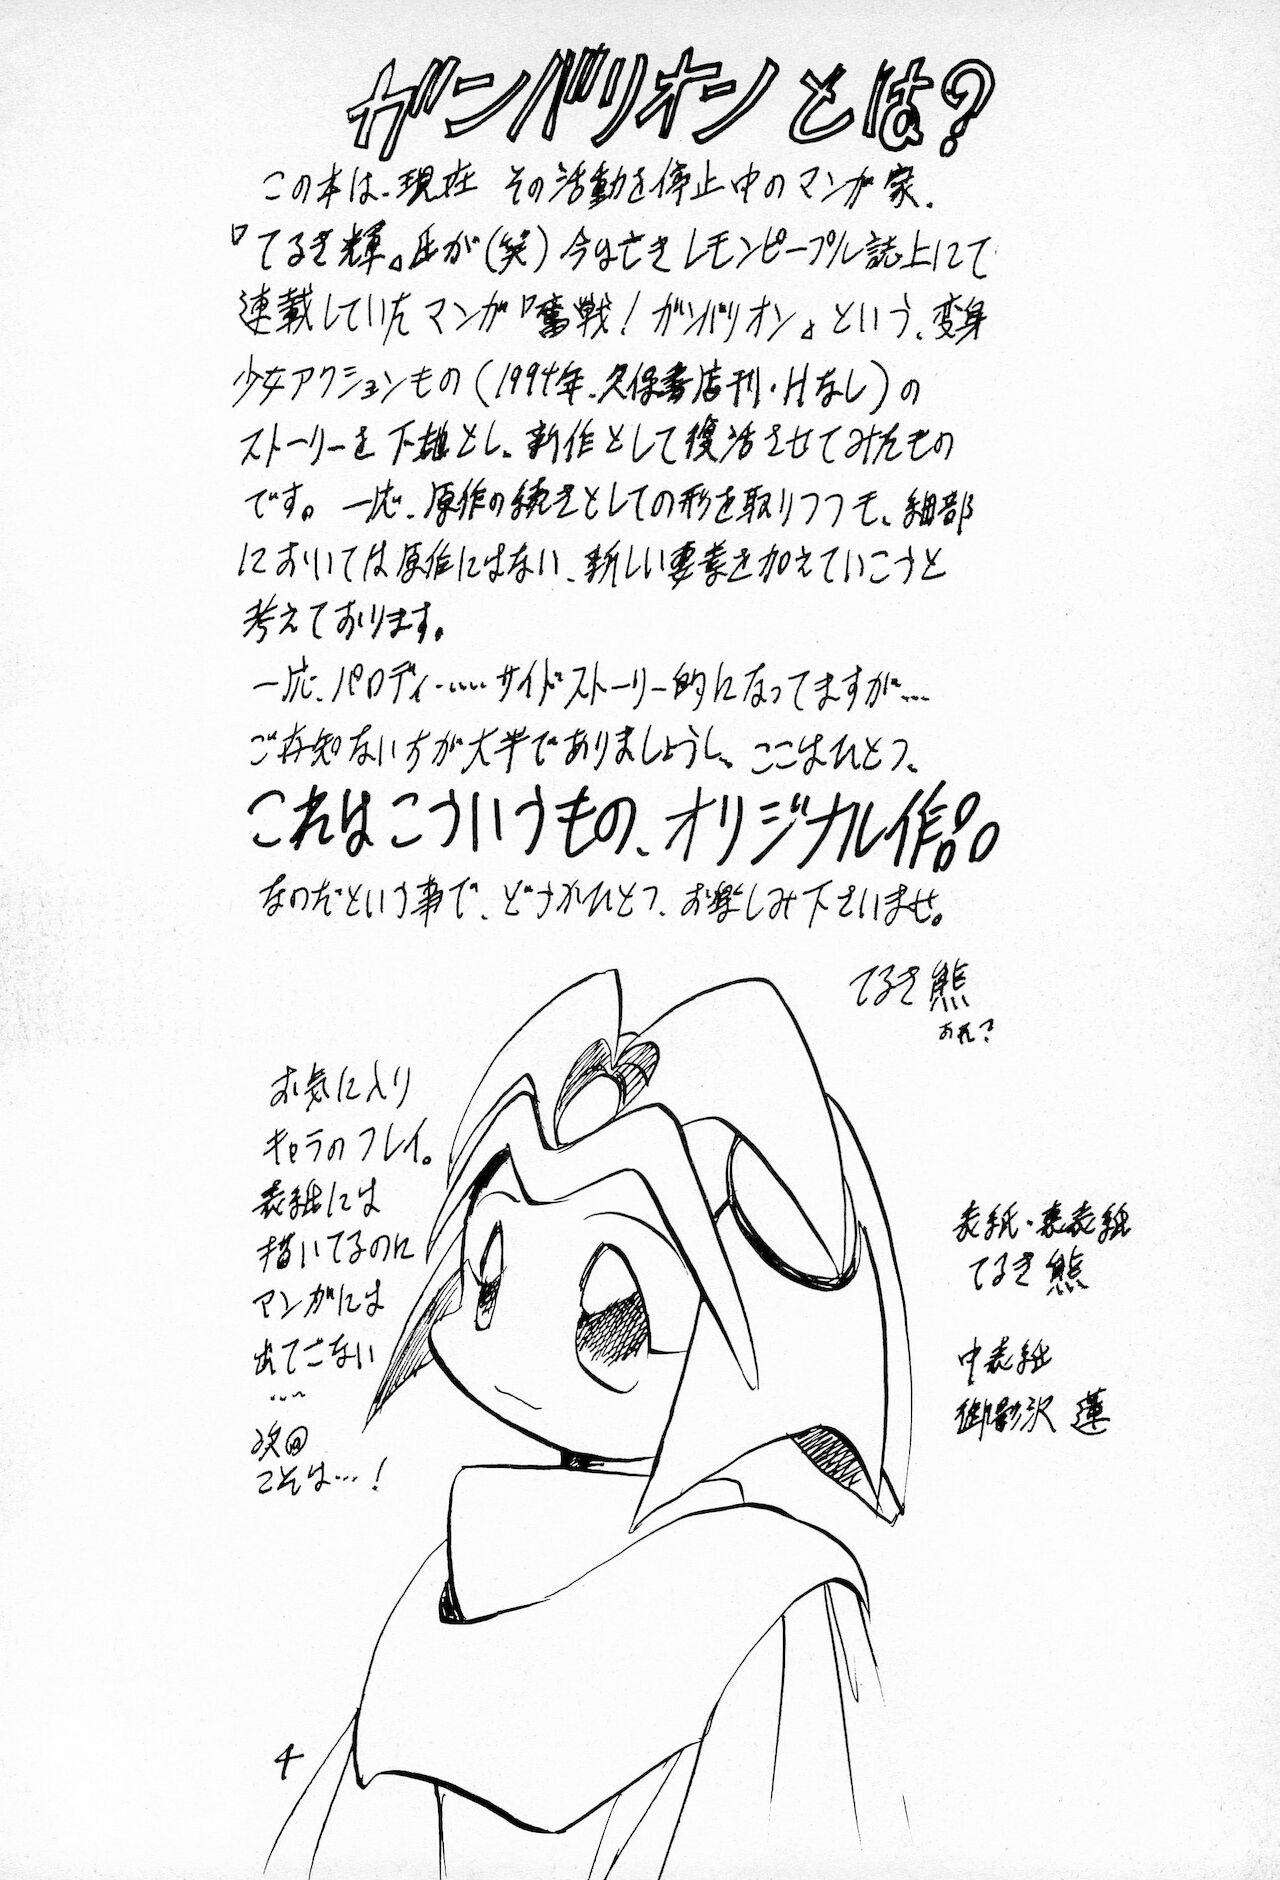 ガンバリオンとは?
この本は、現在 その活動を停止中のマンガ家、
『てるき輝』氏が(笑)今は亡きレモンピープル誌上にて
連載していたマンガ『奮戦!ガンバリオン』という、変身
少女アクションもの(1994年、久保書店刊・Hなし)の
ストーリーを下雄とし、新作として復活させてみたもの
です。一応、原作の続きとしての形を取りつつも、細部
においては原作にはない、新しい要素を加えていこうと
考えております。
一応、パロディ……サイドストーリー的になってますが…
ご存知ない方が大半でありましょうし、ここはひとつ、
これはこういうもの、オリジナル作品。
なのだという事で、どうかひとつ、お楽しみ下さいませ。
てるき熊
あれ?
お気に入り
キャラのフレイ。
表紙には
描いてるのに
マンガには
出てこない
……
次回
こそは…!
表紙・裏表紙
てるき熊
中表紙
御影沢 蓮
4